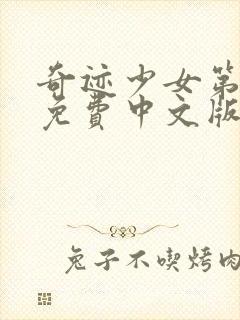 奇迹少女第
免費中文版
兔子不喫烤肉